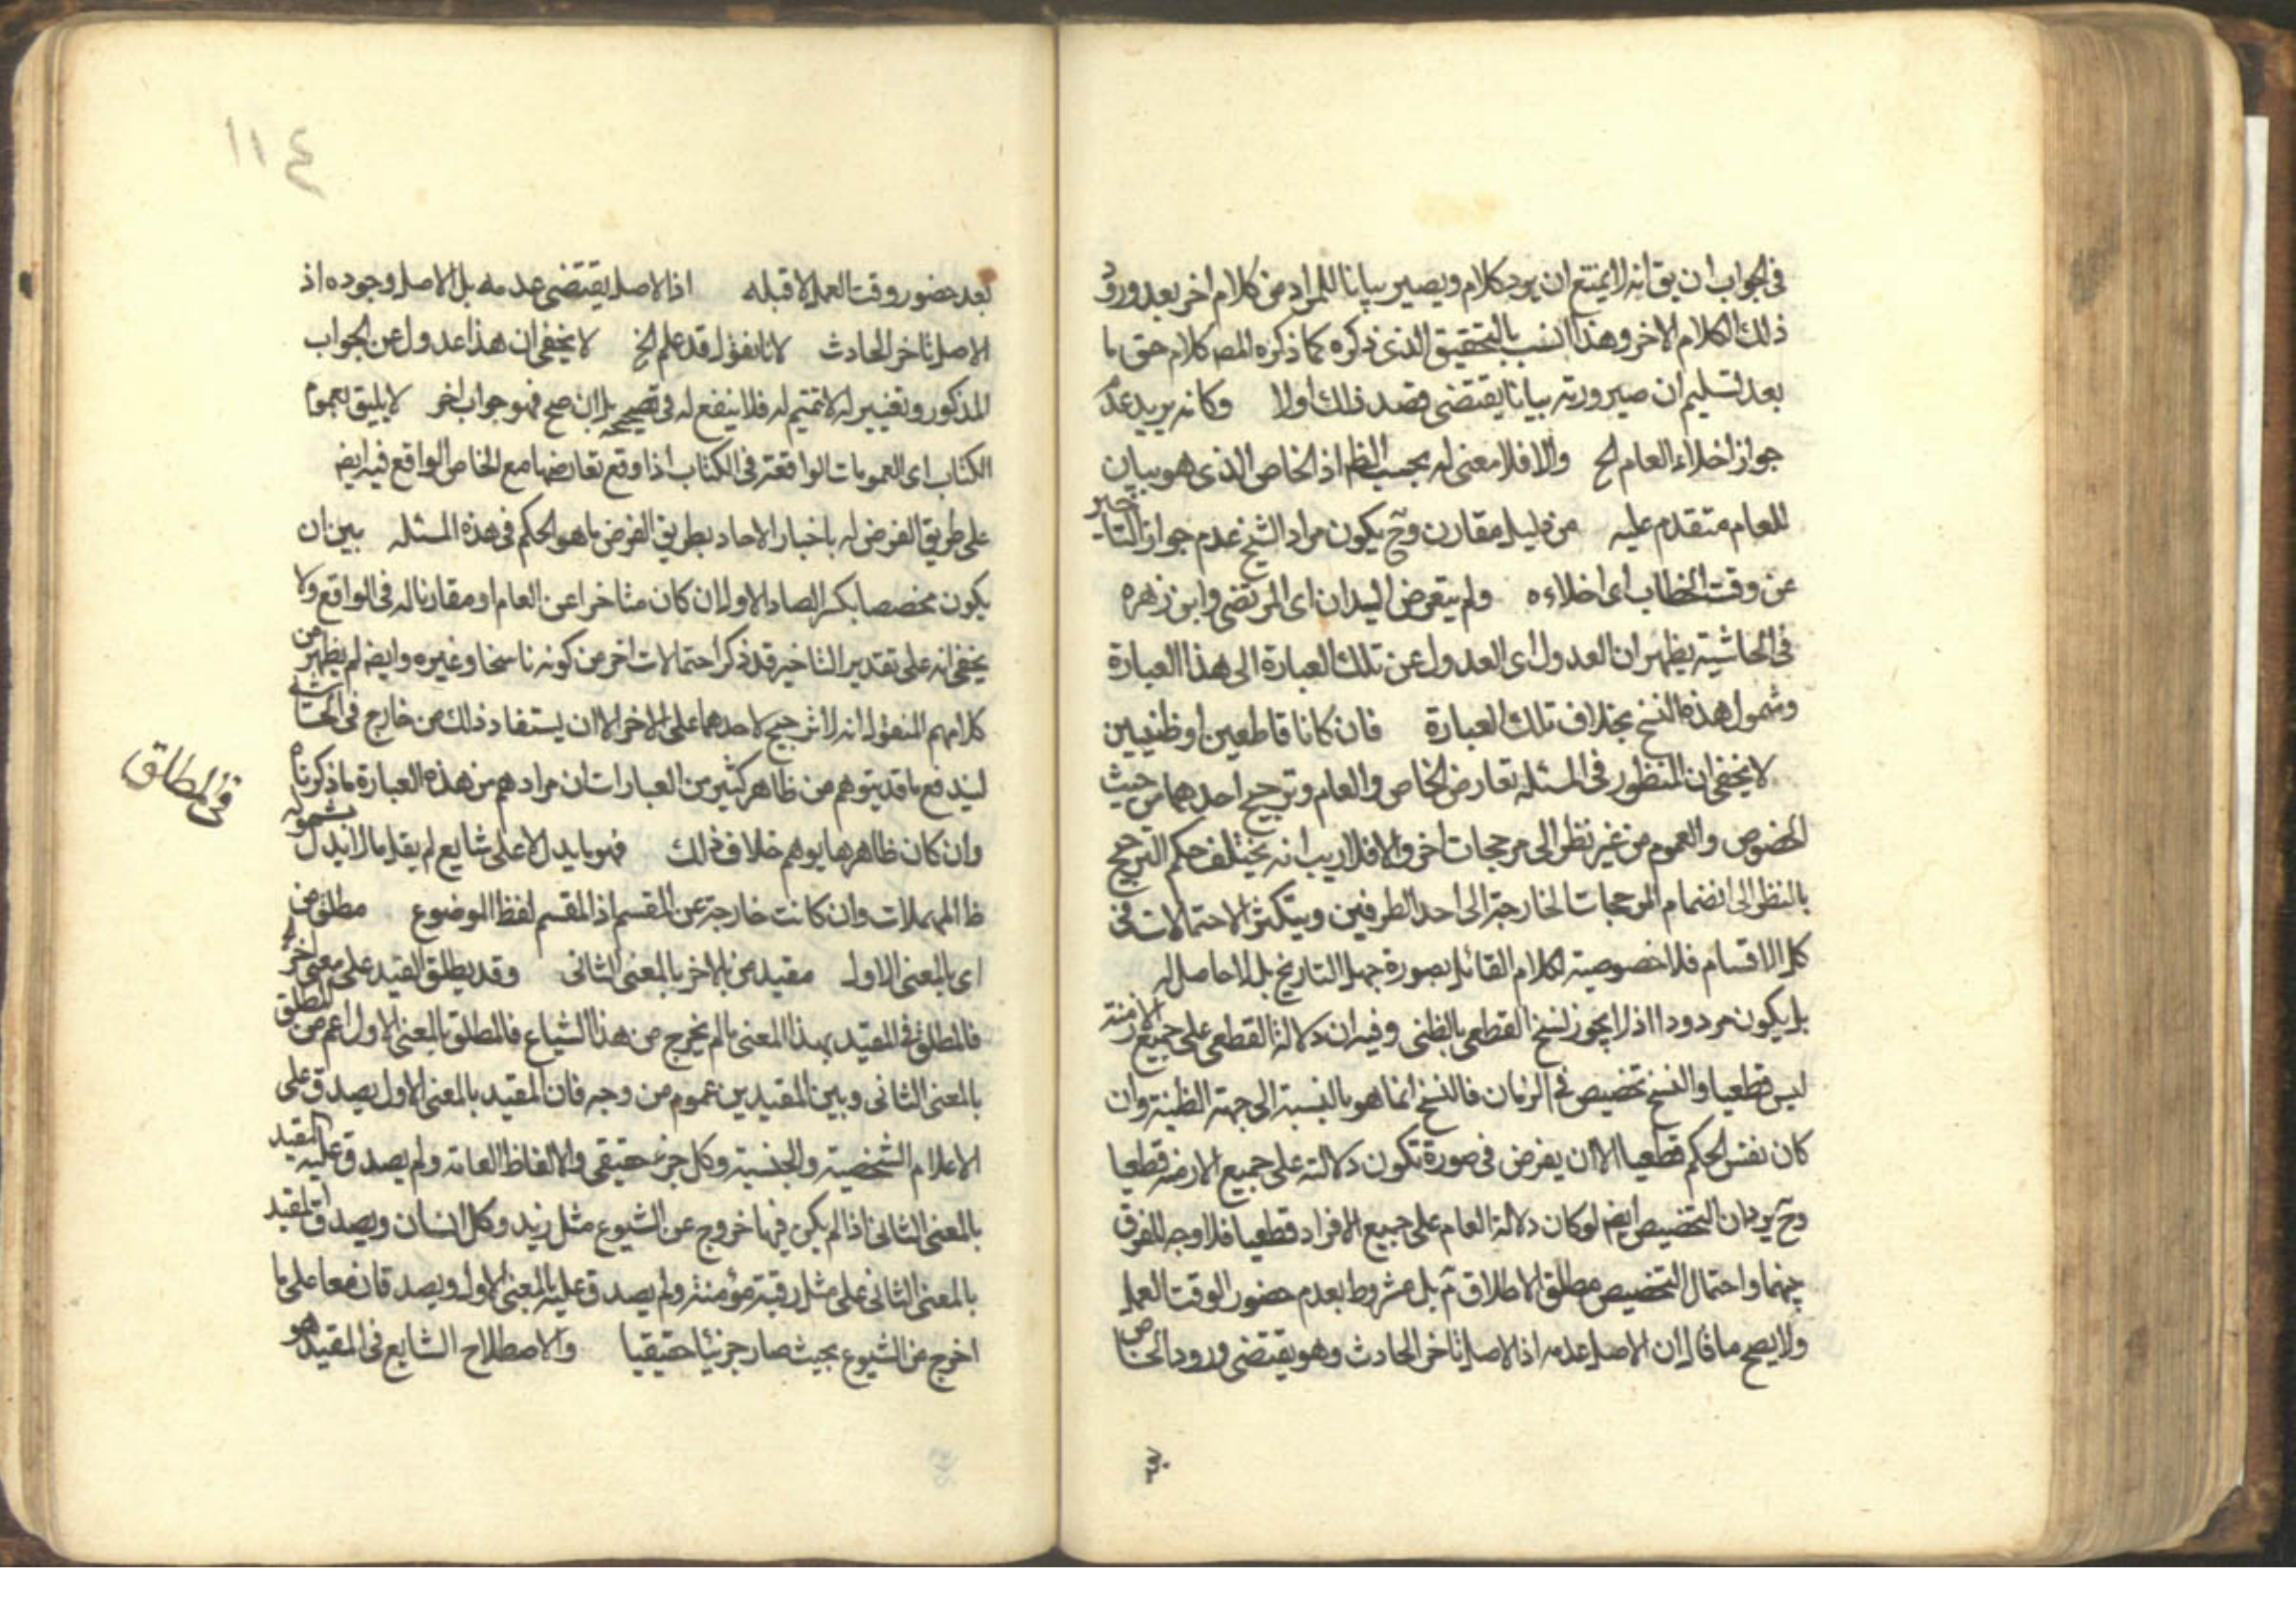 فى الجواب ان يق انه لا يمتنع ان يرد كلام ويصير بيانا للمراد من كلام اخر بعد ورود
ذلك الكلام الاخر وهذا انسب بالتحقيق الذى ذكره كما ذكره المصـ كلام حق ما
بعد تسليم ان صيرورته بيانا يقتضى قصد ذلك اولا وكانه يريد عدم
جواز اخلاء العام الخ والا فلا معنى له بحسب الظ اذ الخاص الذى هو بيان
للعام متقدم عليه من دليل مقارن وح يكون مراد الشيخ عدم جواز التاخير
عن وقت الخطاب اى اخلاءه ولم يتعرض السيدان اى المرتضى وابن زهره
فى الحاشية يظهر ان العدول اى العدول عن تلك العبارة الى هذا العبارة
وشمول هذه النسخ بخلاف تلك العبارة فان كانا قاطعين او ظنيين
لا يخفى ان المنظور فى المسئله تعارض الخاص والعام وترجيح احدهما من حيث
الخصوص والعموم من غير نظر الى مرجحات اخر والا فلا ريب انه يختلف حكم الترجيح
بالنظر الى انضمام المرجحات الخارجة الى احد الطرفين ويتكثر الاحتمالات فى
كل الاقسام فلا خصوصية لكلام القائل بصورة جهل التاريخ بل لا حاصل له
بل يكون مردودا اذ لا يجوز نسخ القطعى بالظنى وفيه ان دلالة القطعى على جميع الازمنة
ليس قطعيا والنسخ تخصيص فى الزمان فالنسخ انما هو بالنسبة الى جهته الظنية وان
كان نفس الحكم قطعيا الا ان يفرض فى صورة تكون دلالته على جميع الازمنه قطعيا
وح يرد ان التخصيص ايضـ لو كان دلالة العام على جميع الافراد قطعيا فلا وجه للفرق
بينهما واحتمال التخصيص مطلق الاطلاق ثم بل مشروط بعدم حضور الوقت العمل
ولا يصح ما قال ان الاصل عدمه اذ الاصل تاخر الحادث وهو يقتضى ورود الخاص
بعد
١١٤
بعد حضور وقت العمل لا قبله اذ الاصل يقتضى عدمه بل الاصل وجوده اذ
الاصل تاخر الحادث لانا نقول قد علم الخ لا يخفى ان هذا عدول عن الجواب
المذكور وتغيير له لا تتميم له فلا ينفع له فى تصحيحه بل ان صح فهو جواب اخر لا يليق بعموم
الكتاب اى العمومات الواقعة فى الكتاب اذا وقع تعارضها مع الخاص الواقع فيه ايضـ
على طريق الفرض له باخبار الاحاد بطريق الفرض ما هو الحكم فى هذه المسئله بين ان
يكون مخصصا بكسر الصاد الاول ان كان متاخرا عن العام او مقارنا له فى الواقع ولا
يخفى انه على تقدير التاخير قد ذكر احتمالات اخر من كونه ناسخا وغيره وايضـ لم يظهر من
كلامهم المنقول انه لا ترجيح لاحدهما على الاخر الا ان يستفاد ذلك من خارج فى الحاشية
ليندفع ما قد يتوهم من ظاهر كثير من العبارات ان مرادهم من هذه العبارة ما ذكرناه
فى المطلق
وان كان ظاهرها يوهم خلاف ذلك فهو ما يدل الا على شايع لم يقل ما لا يدل بشموله
ظ المهملات وان كانت خارجة عن المقسم اذ المقسم لفظ الموضوع مطلق من
اى بالمعنى الاول مقيد من بالاخر بالمعنى الثانى وقد يطلق المقيد على معنى اخر
فالمطلق فى المقيد بهذا المعنى ما لم يخرج من هذا الشياع فالمطلق بالمعنى الاول اعم من المطلق
بالمعنى الثانى وبين المقيدين عموم من وجه فان المقيد بالمعنى الاول يصدق على
الاعلام الشخصية والجنسية وكل جزء حقيقى والالفاظ العامه ولم يصدق عليه المقيد
بالمعنى الثانى اذا لم يكن فيها خروج عن الشيوع مثل زيد وكل انسان ويصدق المقيد
بالمعنى الثانى على مثل رقبة مؤمنة ولم يصدق عليه بالمعنى الاول ويصدقان معا على ما
اخرج من الشيوع بحيث صار جزئيا حقيقيا والاصطلاح الشايع فى المقيد هو